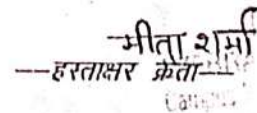 मीता शर्मा
---हस्ताक्षर क्रेता---